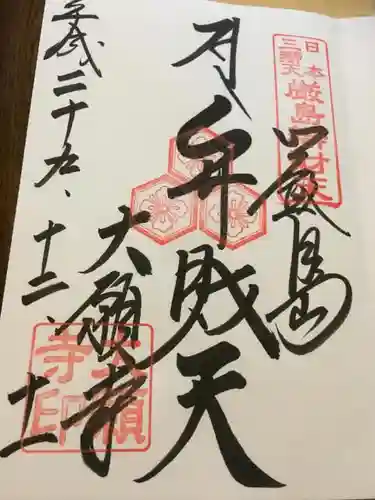 日本
三大
厳島弁財天
厳島
弁財天
大願寺
大願寺印
平成二十九、十二、十一